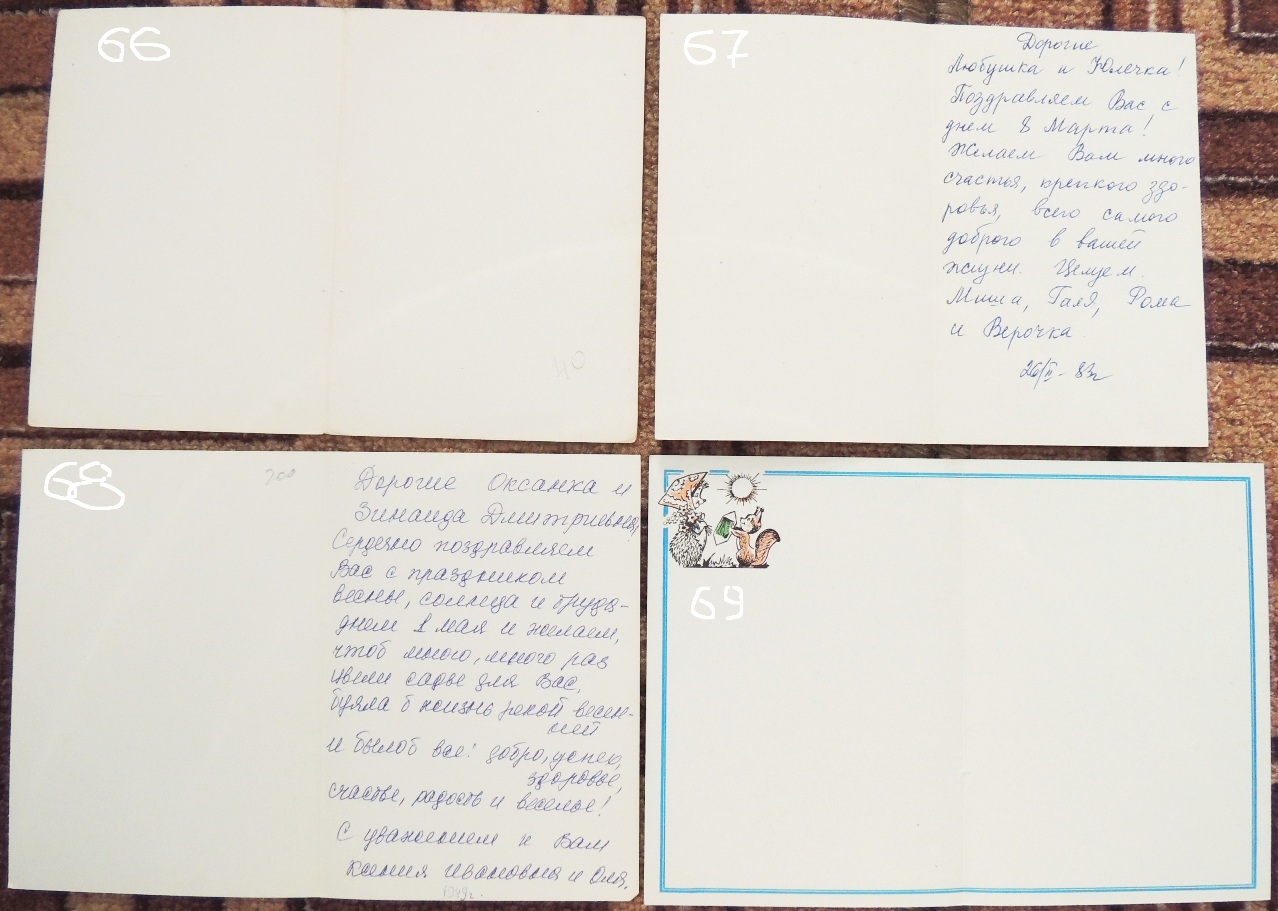 66
40
67
Дорогие
Любушка и Юлечка!
Поздравляем Вас с
днем 8 Марта!
Желаем Вам много
счастья, крепкого здо-
ровья, всего самого
доброго в вашей
жизни. Целуем.
Миша, Галя, Рома
и Верочка.
26/II - 83г
68
700
Дорогие Оксанка и
Зинаида Дмитриевна,
Сердечно поздравляем
Вас с праздником
весны, солнца и труда-
днем 1 мая и желаем,
чтоб много, много раз
цвели сады для Вас,
буяла б жизнь рекой весен-
ней
и было б все! добро, успех,
здоровье,
счастье, радость и веселье!
С уважением к Вам
Ксения Ивановна и Оля.
69